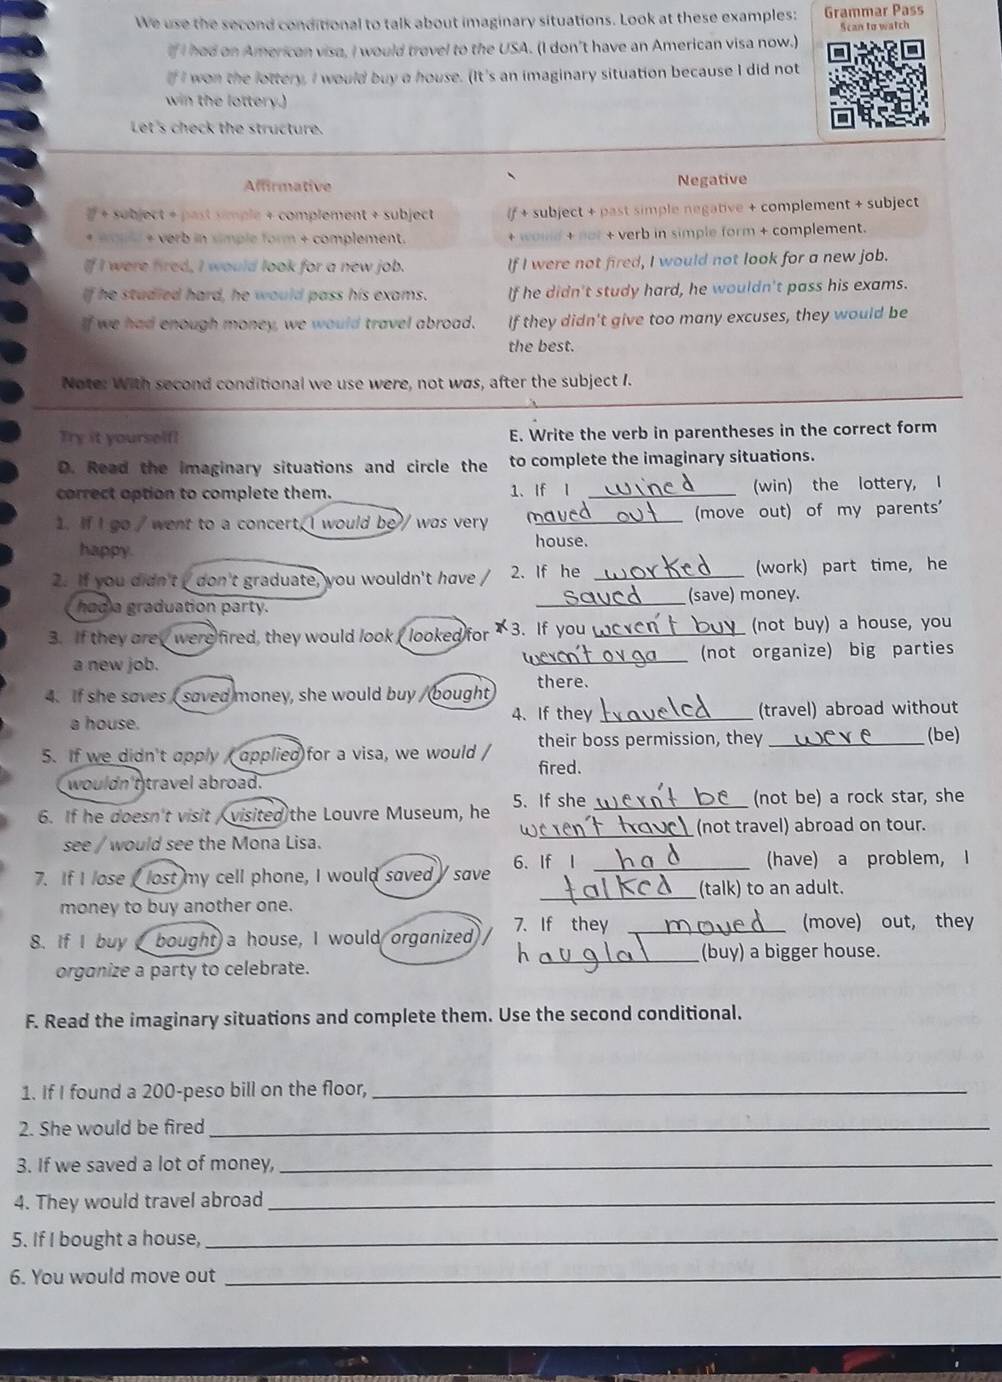 We use the second conditional to talk about imaginary situations. Look at these examples:
Grammar Pass
Scan to watch
If I had an American visa, I would travel to the USA. (I don't have an American visa now.)
If I won the lottery, I would buy a house. (It's an imaginary situation because I did not
win the lottery.)
Let's check the structure.
Affirmative
If + subject + past simple + complement + subject
+ would + verb in simple form + complement.
If I were fired, I would look for a new job.
If he studied hard, he would pass his exams.
If we had enough money, we would travel abroad.
Negative
If + subject + past simple negative + complement + subject
+ would + not + verb in simple form + complement.
If I were not fired, I would not look for a new job.
If he didn't study hard, he wouldn't pass his exams.
If they didn't give too many excuses, they would be
the best.
Note: With second conditional we use were, not was, after the subject I.
Try it yourself!
D. Read the imaginary situations and circle the
correct option to complete them.
1. If I go / went to a concert, I would be / was very
happy.
2. If you didn't / don't graduate, you wouldn't have /
had a graduation party.
3. If they are / were fired, they would look / looked for
a new job.
4. If she saves / saved money, she would buy / bought
a house.
5. If we didn't apply / applied for a visa, we would /
wouldn't travel abroad.
6. If he doesn't visit / visited the Louvre Museum, he
see / would see the Mona Lisa.
7. If I lose / lost my cell phone, I would saved / save
money to buy another one.
8. If I buy / bought a house, I would organized /
organize a party to celebrate.
E. Write the verb in parentheses in the correct form
to complete the imaginary situations.
1. If I wined (win) the lottery, I
maved out (move out) of my parents'
house.
2. If he worked (work) part time, he
saved (save) money.
3. If you weren't buy (not buy) a house, you
weren't orga (not organize) big parties
there.
4. If they traveled (travel) abroad without
their boss permission, they were (be)
fired.
5. If she wern't be (not be) a rock star, she
weren't travel (not travel) abroad on tour.
6. If I had (have) a problem, I
talked (talk) to an adult.
7. If they moved (move) out, they
hauglal (buy) a bigger house.
F. Read the imaginary situations and complete them. Use the second conditional.
1. If I found a 200-peso bill on the floor,
2. She would be fired
3. If we saved a lot of money,
4. They would travel abroad
5. If I bought a house,
6. You would move out